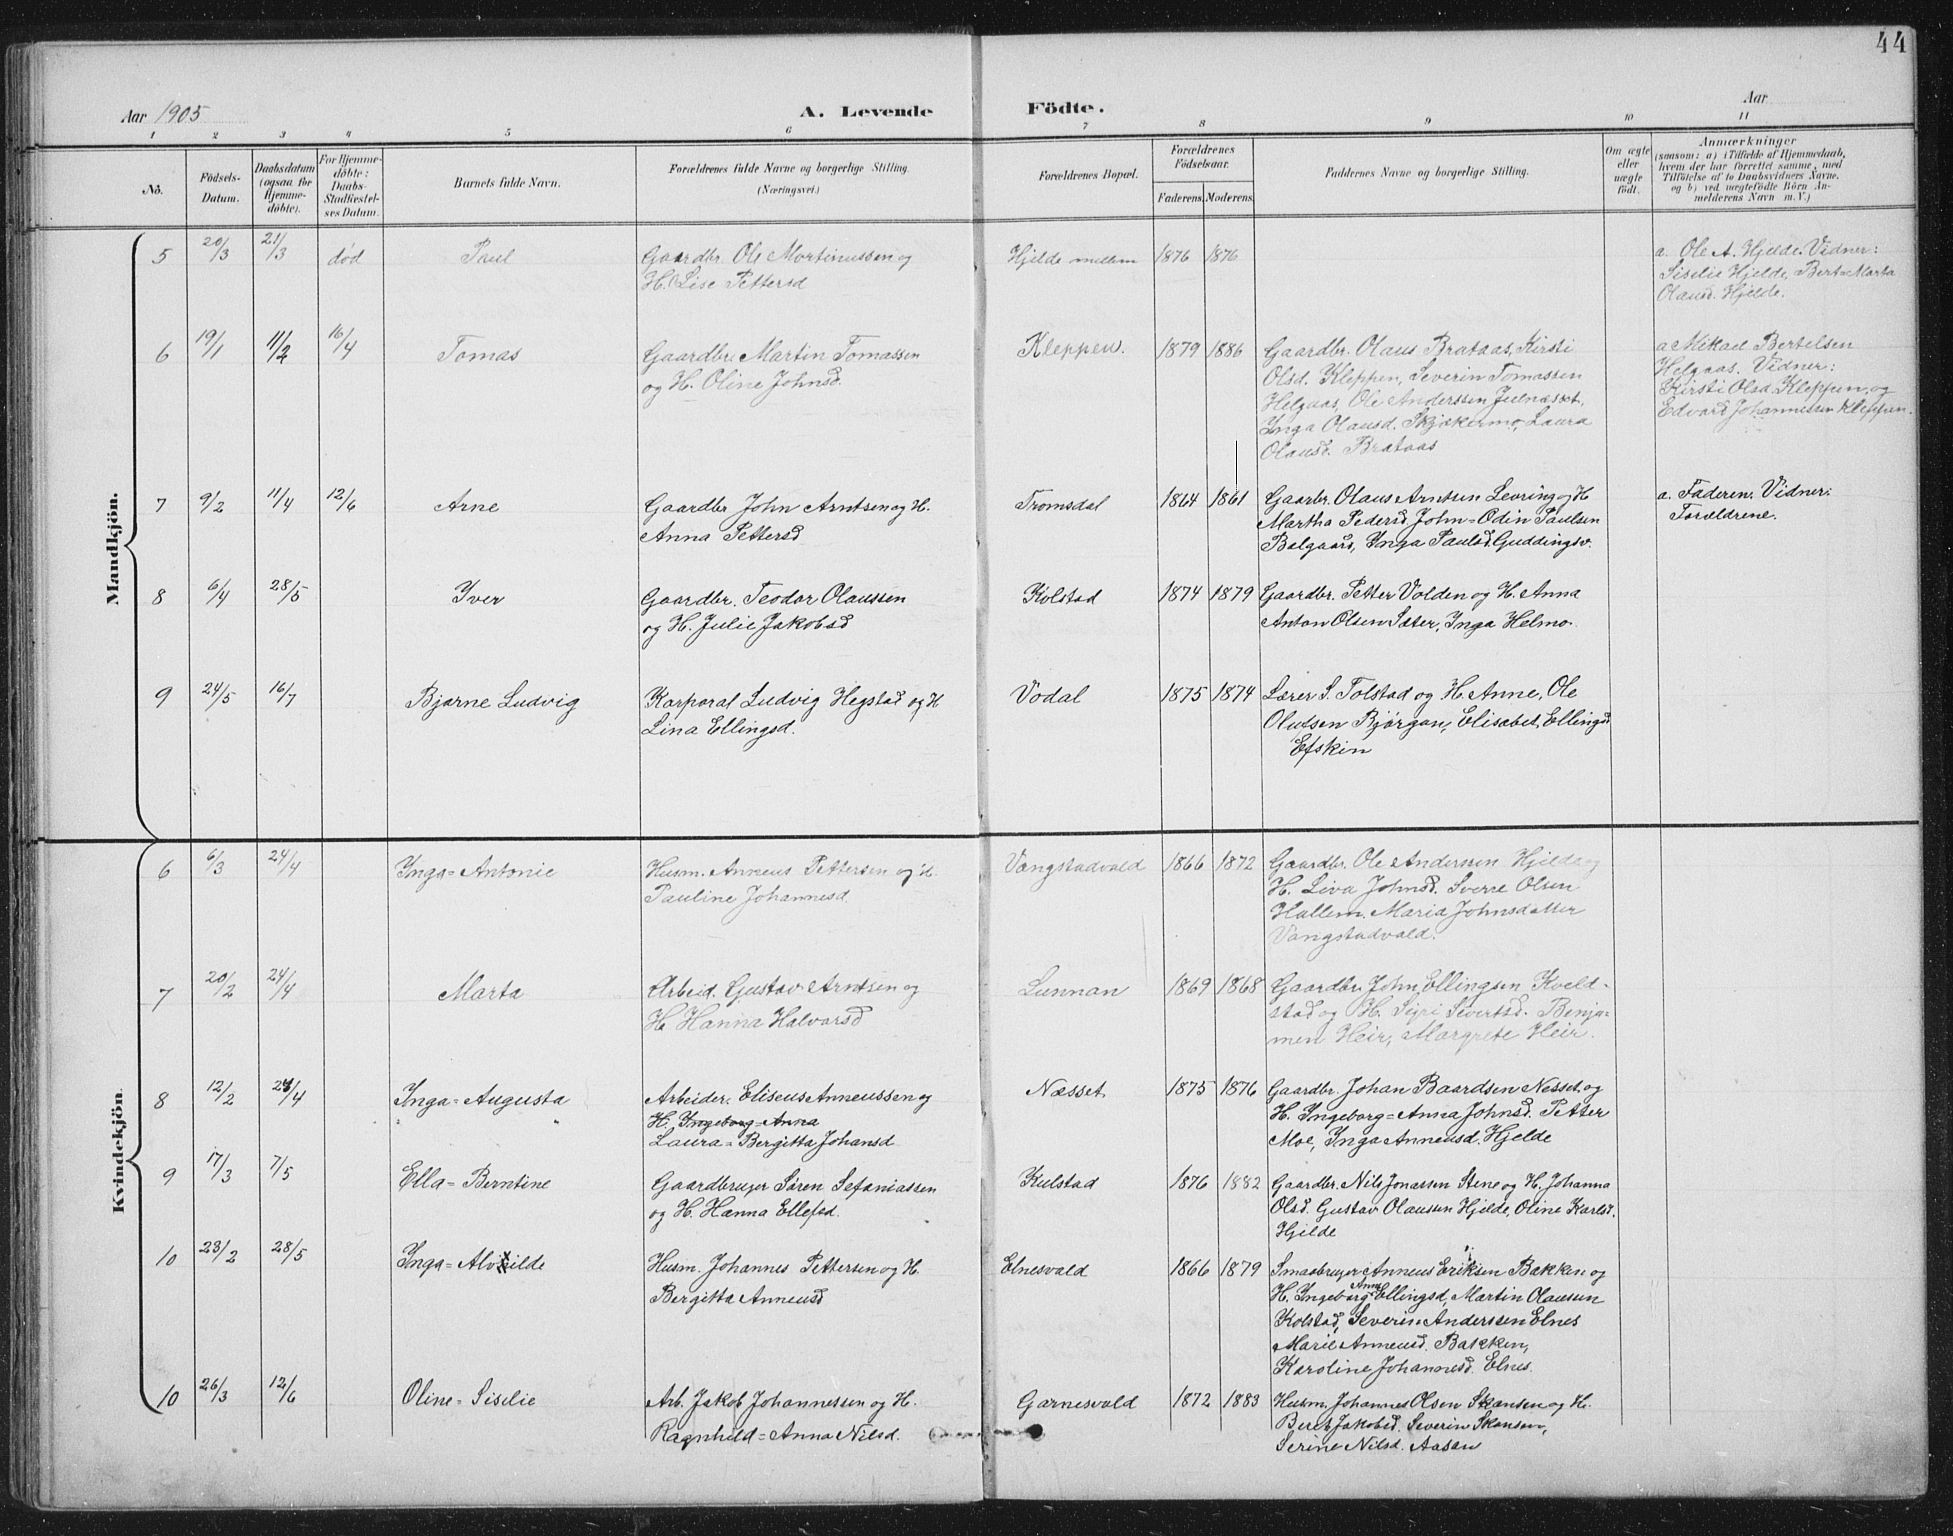 44
Aar 1905
A. Levende Födte.
Aar
1 2 3 4 5 6 7 8 9 10 11
No.
Födsels-Datum.
Daabsdatum (ogsaa for Hjemme-döbte).
For Hjemme-döbte: Daabs-Stadfæstel-ses Datum.
Barnets fulde Navn.
Forældrenes fulde Navne og borgerlige Stilling. (Næringsvei.)
Forældrenes Bopæl.
Forældrenes Födselsaar.
Faderens. Moderens.
Faddernes Navne og borgerlige Stilling.
Om ægte eller uægte födt.
Anmærkninger
(saasom: a) i Tilfælde af Hjemmedaab,
hvem der har forrettet samme, med
Tilföielse af to Daabsvidners Navne.
og b) ved uægtefödte Börn An-
melderens Navn m. V.)
Mandkjön.
5 20/3 21/3 død Paul
Gaardbr. Ole Martinussen og
H. Lise Pettersd
Hjelde mellem 1876 1876
a. Ole A. Hjelde. Vidner:
Siselie Hjelde, Beret-Marta
Olausd. Hjelde.
6 19/1 11/2 16/4 Tomas
Gaardbr. Martin Tomassen
og H. Oline Johnsd.
Kleppen. 1879 1886
Gaardbr. Olaus Brataas, Kirsti
Olsd. Kleppen, Severin Tomassen
Helgaas, Ole Anderssen Julnæsset,
Inga Olausd. Skjækermo, Laura
Olausd. Brataas
a Mikael Bertelsen
Helgaas. Vidner:
Kirsti Olsd. Kleppen og
Edvard Johannessen Kleppen.
7 9/2 11/4 12/6 Arne
Gaardbr John Arntsen og H.
Anna Pettersd
Tromsdal 1864 1861
Gaarbr. Olaus Arntsen Levring og H
Martha Pedersd John-Odin Paulsen
Balgaard, Inga Paulsd. Guddingsv.
a. Faderen. Vidner:
Forældrene.
8 6/4 28/5 Iver
Gaardbr. Teodor Olaussen
og H. Julie Jakobsd
Kolstad 1874 1879
Gaardbr. Petter Volden og H. Anna
Anton Olsen Sæter, Inga Helmo.
9 24/5 16/7 Bjarne Ludvig
Korporal Ludvig Hegstad og H
Lina Ellingsd.
Vodal 1875 1874
Lærer S. Tolstad og H. Anne, Ole
Olufsen Bjørgan, Elisabet Ellingsd
Efskin
Kvindekjön.
6 6/3 24/4 Inga=Antonie
Husm. Anneus Pettersen og H.
Pauline Johannesd.
Vangstadvald 1866 1872
Gaardbr. Ole Anderssen Hjelde og
H. Liva Johnsd. Sverre Olsen
Hallem. Maria Johnsdatter
Vangstadvald.
7 20/2 24/4 Marta
Arbeid. Gustav Arntsen og
H. Hanna Halvorsd
Lunnan 1869 1868
Gaardbr. John Ellingsen Kveld-
stad og H. Sigri Sivertsd. Benja-
men Heir, Margrete Heir.
8 12/2 24/4 Inga=Augusta
Arbeider Eliseus Anneussen og
H. Ingeborg=Anna
Laura=Bergitta Johansd
Næsset 1875 1876
Gaardbr. Johan Baardsen Nesset og
H. Ingeborg=Anna Johnsd. Petter
Moe, Inga Anneusd. Hjelde
9 17/3 7/5 Ella=Berntine
Gaardbruger Sören Sefaniassen
og H. Hanna Ellefsd.
Kulstad 1876 1882
Gaardbr. Nils Jonassen Stene og H. Johanna
Olsd. Gustav Olausen Hjelde, Oline Karlsd.
Hjelde
10 23/2 28/5 Inga=Alvilde
Husm. Johannes Pettersen og H.
Bergitta Anneusd
Elnesvald 1866 1879
Smaabruger Anneus Eriksen Bakken og
H. Ingeborg Anna Ellingsd, Martin Olausen
Kolstad, Severin Anderssen Elnes
Marie Anneusd. Bakken,
Karoline Johannesd. Elnes.
10 26/3 12/6 Oline=Siselie
Arb. Jakob Johannessen og H.
Ragnhild=Anna Nilsd.
Garnesvald 1872 1883
Husm. Johannes Olsen Skansen og H.
Berit Jakobsd. Severin Skansen,
Serine Nilsd. Aasan